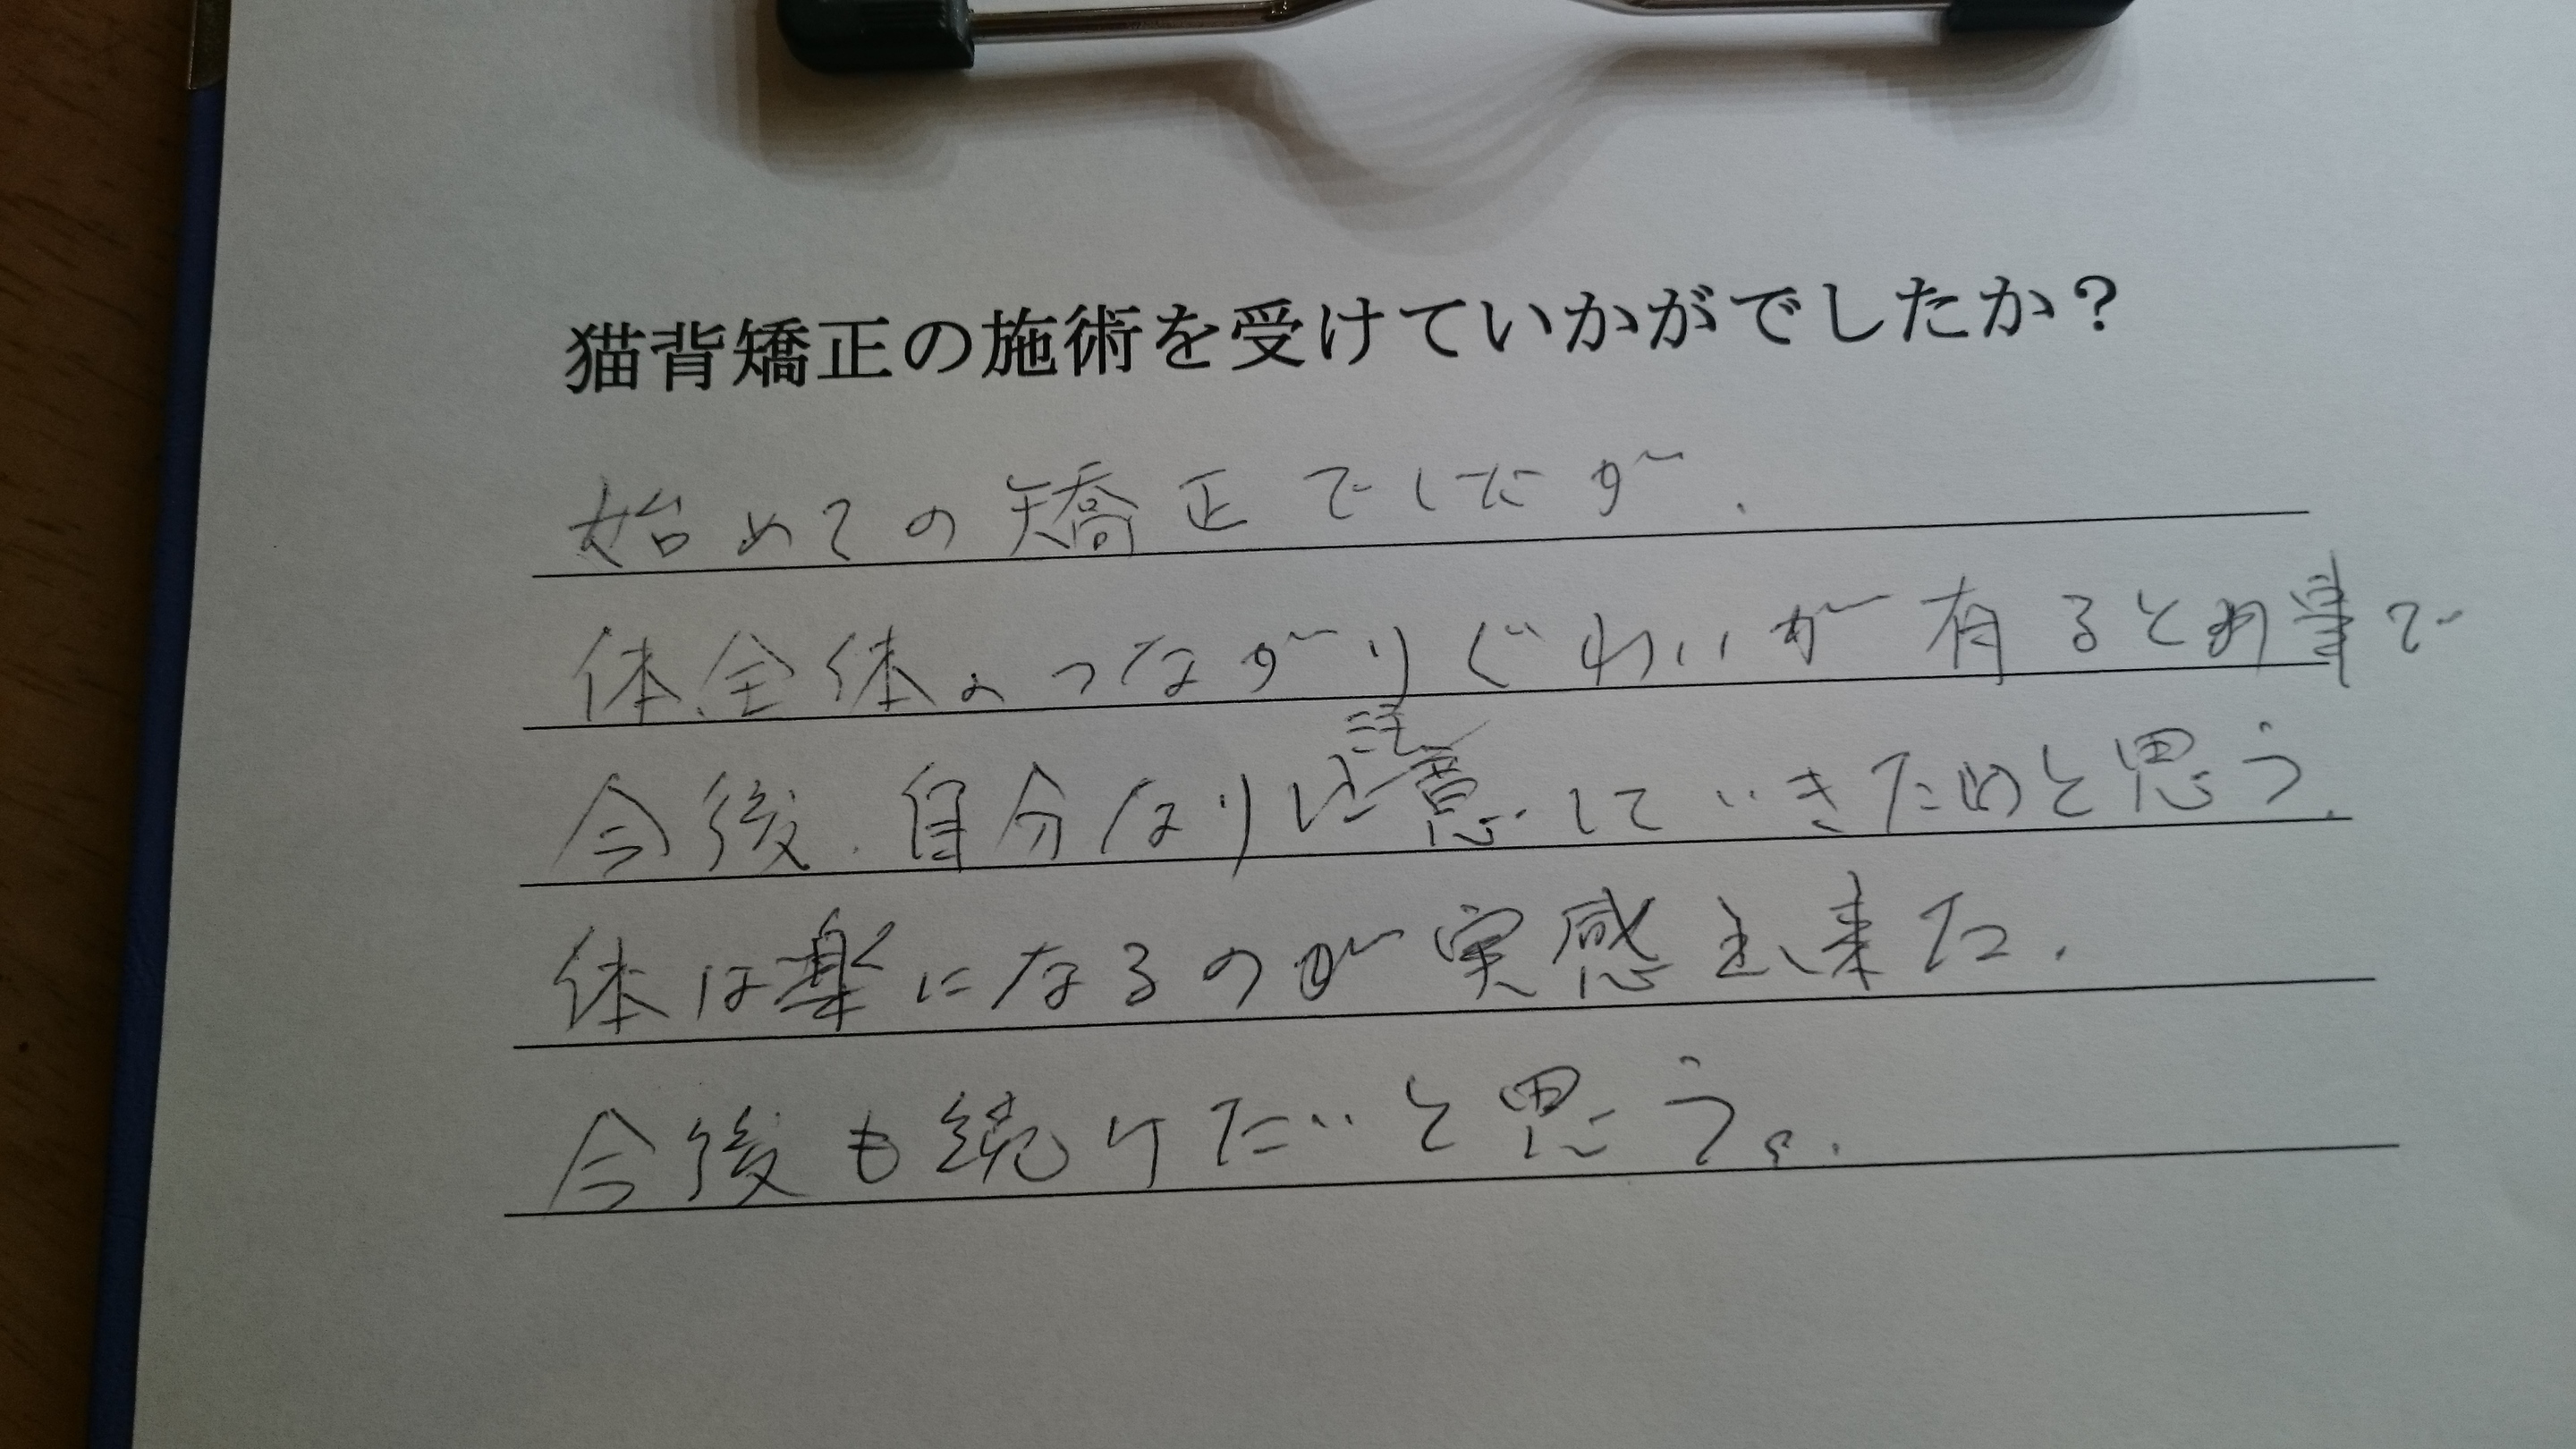 猫背矯正の施術を受けていかがでしたか？
始めての矯正でしたが、
体全体のつながりぐあいが有るとの事で
今後、自分なり注意していきたいと思う、
体は楽になるのが実感出来た、
今後も続けたいと思う。